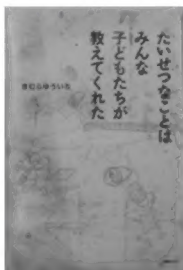 たいせつなことは
みんな
子どもたちが
教えてくれた
きむらゆういち